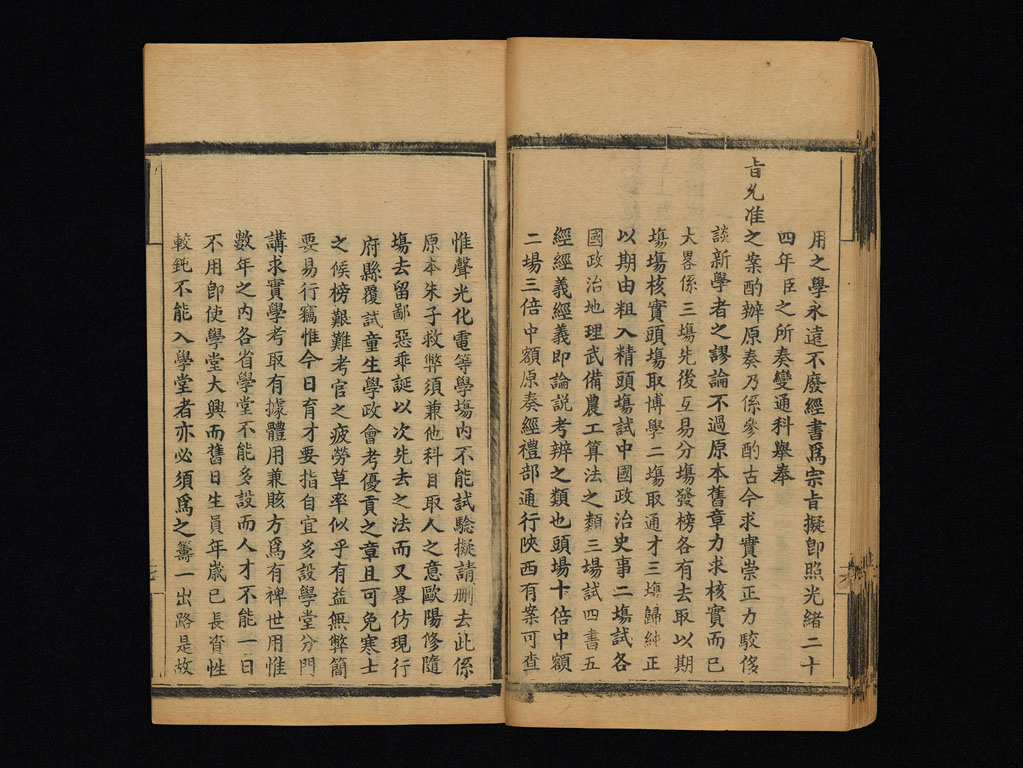 用之學永遠不廢經書爲宗旨擬卽照光緒二十
四年臣之所奏變通科舉奉
旨允准之案酌辦原奏乃係參酌古今求實崇正力駮侈
談新學者之謬論不過原本舊章力求核實而已
大畧係三塲先後互易分塲發榜各有去取以期
塲塲核實頭塲取博學二塲取通才三塲歸純正
以期由粗入精頭塲試中國政治史事二塲試各
國政治地理武備農工算法之類三場試四書五
經經義經義即論説考辨之類也頭場十倍中額
二場三倍中額原奏經禮部通行陝西有案可查
惟聲光化電等學塲内不能試驗擬請刪去此係
原本朱子救弊須兼他科目取人之意歐陽修隨
塲去留鄙惡乖誕以次先去之法而又畧仿現行
府縣覆試童生學政會考優貢之章且可免寒士
之候榜艱難考官之疲勞草率似乎有益無弊簡
要易行竊惟今日育才要指自宜多設學堂分門
講求實學考取有據體用兼賅方爲有裨世用惟
數年之内各省學堂不能多設而人才不能一日
不用卽使學堂大興而舊日生員年歲已長資性
較鈍不能入學堂者亦必須爲之籌一出路是故